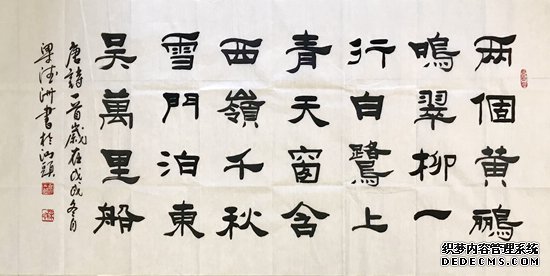 两個黄鸝
鳴翠柳一
行白鷺上
青天窗含
西嶺千秋
雪門泊東
吳萬里船
唐詩一首歲在戊戌冬月
梁 洲書於汕頭
织梦内容管理系统
DEDECMS.COM